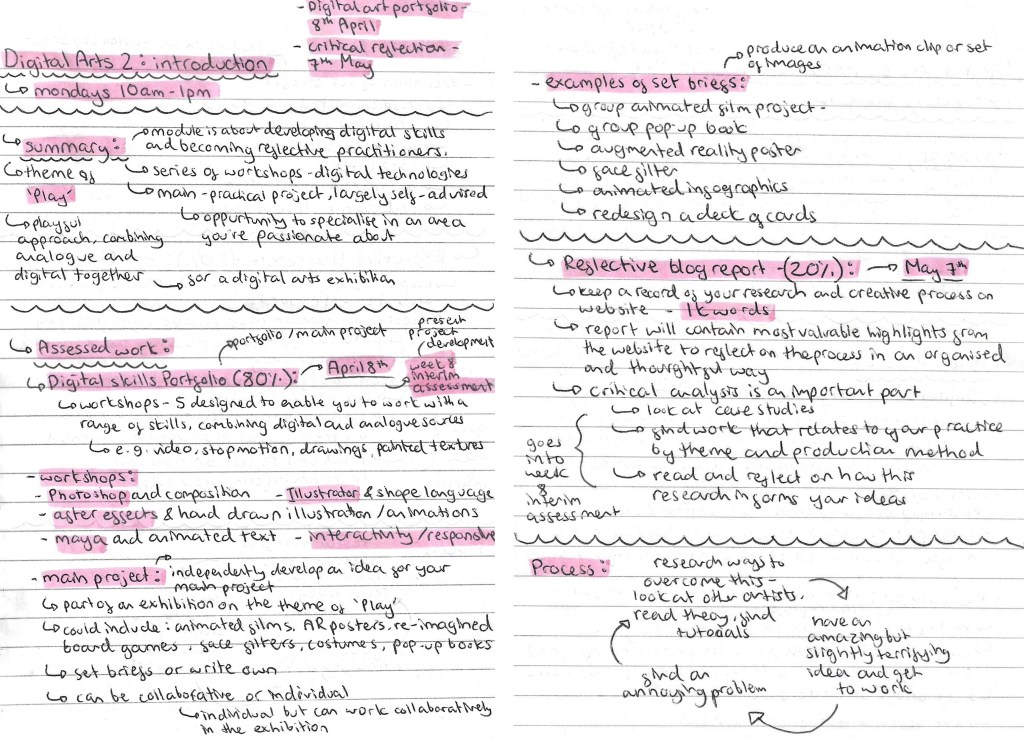 - Digital art portfolio -
8th April
- critical reflection -
7th May
Digital Arts 2: introduction
mondays 10am - 1pm
summary:
module is about developing digital skills
and becoming reflective practitioners.
theme of
'Play'
series of workshops - digital technologies
main - practical project, largely self-advised
playful
approach, combining
analogue and
digital together
oppurtunity to specialise in an area
you're passionate about
for a digital arts exhibition
Assessed work:
portfolio / main project
present
project
development
Digital skills Portfolio (80%):
April 8th
week 8
interim
assessment
workshops - 5 designed to enable you to work with a
range of skills, combining digital and analogue sources
e.g. video, stop motion, drawings, painted textures
- workshops:
- Photoshop and composition - Illustrator & shape language
- after effects & hand drawn illustration / animations
- maya and animated text - interactivity / responsive
- main project:
independently develop an idea for your
main project
part of an exhibition on the theme of 'Play'
could include: animated films, AR posters, re-imagined
board games, face filters, costumes, pop-up books
set briefs or write own
can be collaborative or individual
individual but can work collaboratively
in the exhibition
produce an animation clip or set
of images
- examples of set briefs:
group animated film project -
group pop-up book
augmented reality poster
face filter
animated infographics
redesign a deck of cards
Reflective blog report - (20%): May 7th
keep a record of your research and creative process on
website - 1k words
report will contain most valuable highlights from
the website to reflect on the process in an organised
and thoughtful way
critical analysis is an important part
look at case studies
find work that relates to your practice
by theme and production method
read and reflect on how this
research informs your ideas
goes
into
week
8
interim
assessment
Process:
research ways to
overcome this -
look at other artists,
read theory, find
tutorials
have an
amazing but
slightly terrifying
idea and get
to work
find an
annoying problem